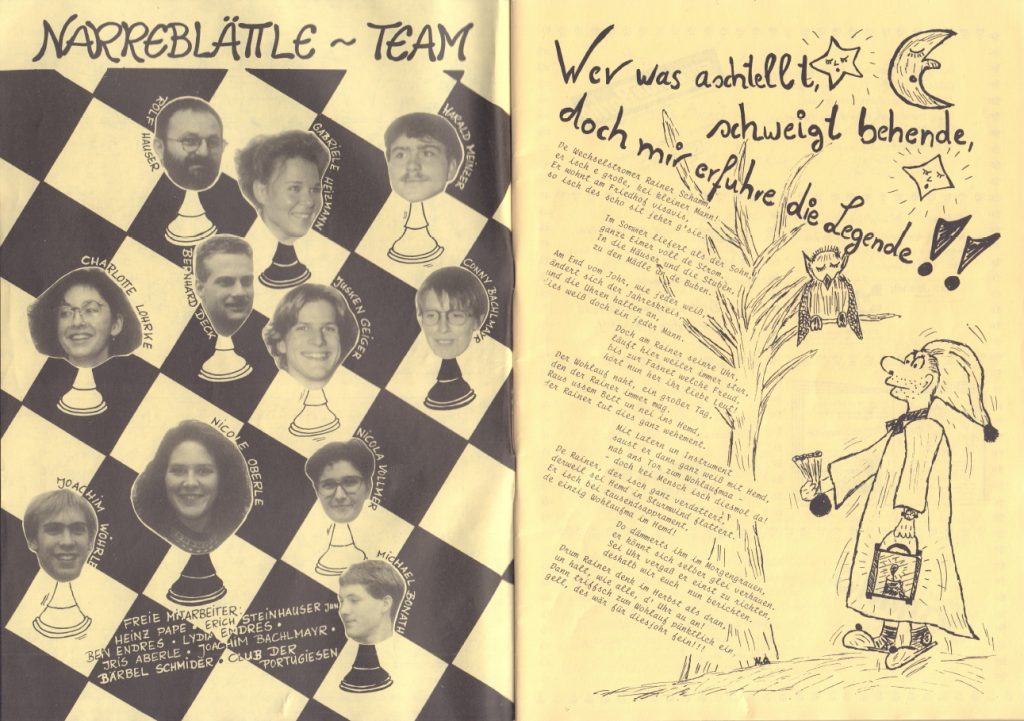 NARREBLÄTTLE ~ TEAM
ROLF HAUSER
GABRIELE HEIZMANN
HARALD MEINZER
CHARLOTTE LOHRKE
BERNHARD DECK
JÜRGEN GEIGER
CONNY BACHLMAYR
NICOLE OBERLE
NICOLA VOLLMER
JOACHIM WÖHRLE
MICHAEL BONATH
FREIE MITARBEITER:
HEINZ PAPE · ERICH STEINHAUSER JUN
BEN ENDRES · LYDIA ENDRES ·
IRIS ABERLE · JOACHIM BACHLMAYR ·
BÄRBEL SCHMIDER · CLUB DER
PORTUGIESEN
Wer was aschtellt,
schweigt behende,
doch mir erfuhre die Legende!!
De Wechselstromer Rainer Schamm,
er isch e große, kei kleiner Mann!
Er wohnt am Friedhof visavis,
so isch des scho sit jeher g'sie.
Im Sommer liefert als der Sohn,
ganze Eimer voll de Strom.
In die Häuser und die Stuben,
zu den Mädle un de Buben.
Am End vom Johr, wie jeder weiß,
ändert sich der Jahreskreis,
und die Uhren halten an,
dies weiß doch ein jeder Mann.
Doch am Rainer seinre Uhr,
läuft hier weiter immer stur,
bis zur Fasnet welche Freud,
hört nun her ihr liebe Leut!
Der Wohlauf naht, ein großer Tag,
den der Rainer immer mag.
Raus ussem Bett un nei ins Hemd,
der Rainer tut dies ganz vehement.
Mit Latern un Instrument
saust er dann ganz weiß mit Hemd,
nab ans Tor zum Wohlaufmaa -
- doch bei Mensch isch diesmol da!
De Rainer, der isch ganz verdattert,
derweil sei Hemd in Sturmwind flattert.
Er isch bei tausendsapprament.
de einzig Wohlaufma im Hemd!
Do dämmerts ihm im Morgengrauen,
er könnt sich selber glei verhauen.
Sei Uhr vergaß er einst zu richten,
deshalb mir euch nun berichten.
Drum Rainer denk im Herbst als dran,
un halt, wie alle, d' Uhr au an!
Dann triffsch zum Wohlauf pünktlich ein,
gell, des wär für diesjohr fein!!!